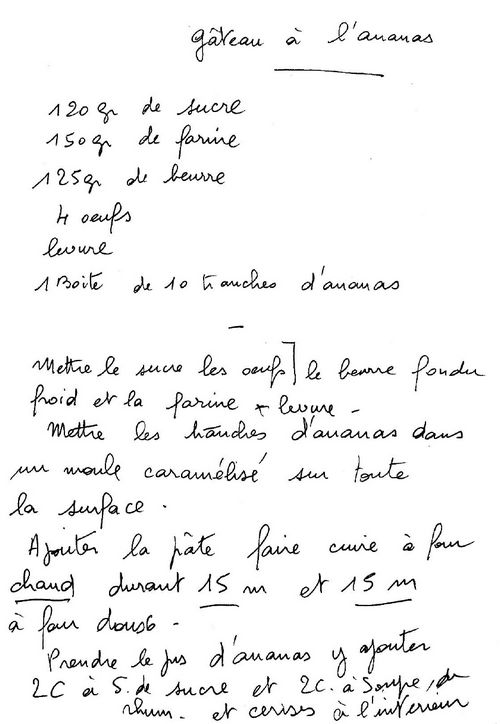 Gâteau à l'ananas
120 gr de sucre
150 gr de farine
125 gr de beurre
4 oeufs
levure
1 Boite de 10 tranches d'ananas
–
Mettre le sucre les oeufs] le beurre fondu
froid et la farine + levure –
Mettre les tranches d'ananas dans
un moule caramélisé sur toute
la surface.
Ajouter la pâte faire cuire à four
chaud durant 15 m et 15 m
à four doux –
Prendre le jus d'ananas y ajouter
2C à S. de sucre et 2c. à Soupe, de
rhum. et cerises à l'intérieur